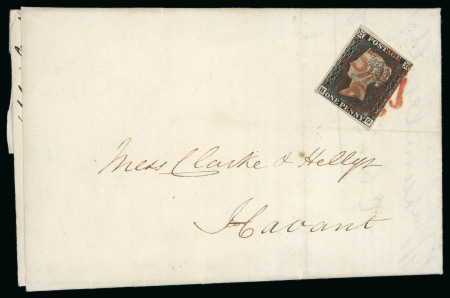 POSTAGE
ONE PENNY
Mess Clarke & Hellyr
Havant